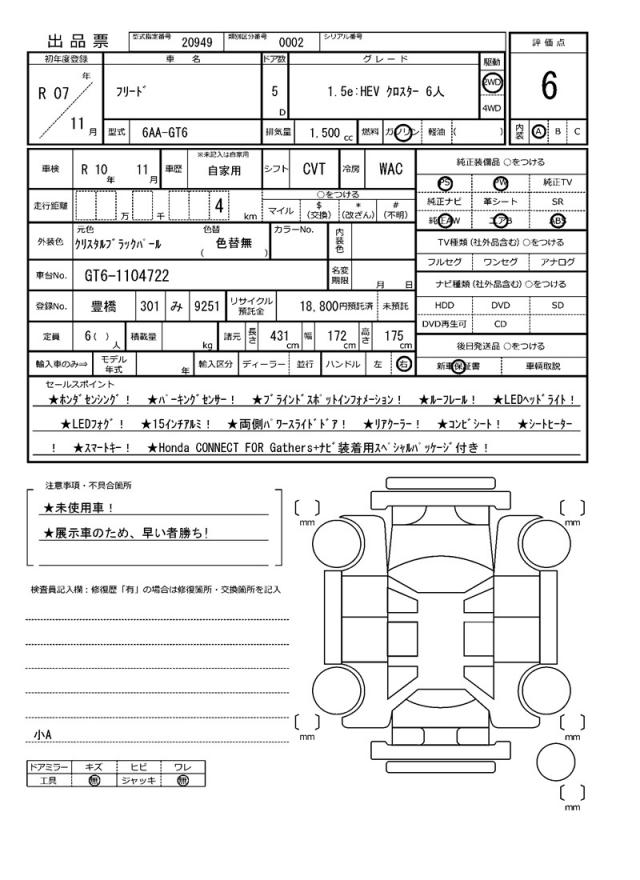 出品票 型式指定番号 20949 類別区分番号 0002 シリアル番号
評価点
6
内装 A B C
初年度登録 車名 ドア数 グレード 駆動
R 07 年 11 月 フリード 5 D 1.5e:HEV クロスター 6人 2WD 4WD
型式 6AA-GT6 排気量 1.500 cc 燃料 ガソリン 軽油 ( )
車検 R 10 年 11 月 車歴 ※未記入は自家用 自家用 シフト CVT 冷房 WAC
走行距離 万 千 4 km ○をつける マイル $(交換) *(改ざん) #(不明)
外装色 元色 クリスタルブラックパール 色替 色替無 ( ) カラーNo. 内装色
車台No. GT6-1104722 名変期限 月 日
登録No. 豊橋 301 み 9251 リサイクル預託金 18,800円預託済 未預託
定員 6( ) 人 積載量 kg 諸元 長さ 431 cm 幅 172 cm 高さ 175 cm
輸入車のみ⇒ モデル年式 年 輸入区分 ディーラー 並行 ハンドル 左 右
純正装備品 ○をつける
PS PW 純正TV
純正ナビ 革シート SR
純正AW エアB ABS
TV種類(社外品含む)○をつける
フルセグ ワンセグ アナログ
ナビ種類(社外品含む)○をつける
HDD DVD SD
DVD再生可 CD
後日発送品 ○をつける
新車保証書 車輌取説
セールスポイント
★ホンダセンシング! ★パーキングセンサー! ★ブラインドスポットインフォメーション! ★ルーフレール! ★LEDヘッドライト!
★LEDフォグ! ★15インチアルミ! ★両側パワースライドドア! ★リアクーラー! ★コンビシート! ★シートヒーター
! ★スマートキー! ★Honda CONNECT FOR Gathers+ナビ装着用スペシャルパッケージ付き!
注意事項・不具合箇所
★未使用車!
★展示車のため、早い者勝ち!
検査員記入欄:修復歴「有」の場合は修復箇所・交換箇所を記入
小A
ドアミラー キズ ヒビ ワレ
工具 無 ジャッキ 無
[ ] mm
[ ] mm
[ ] mm
[ ] mm
[ ] mm